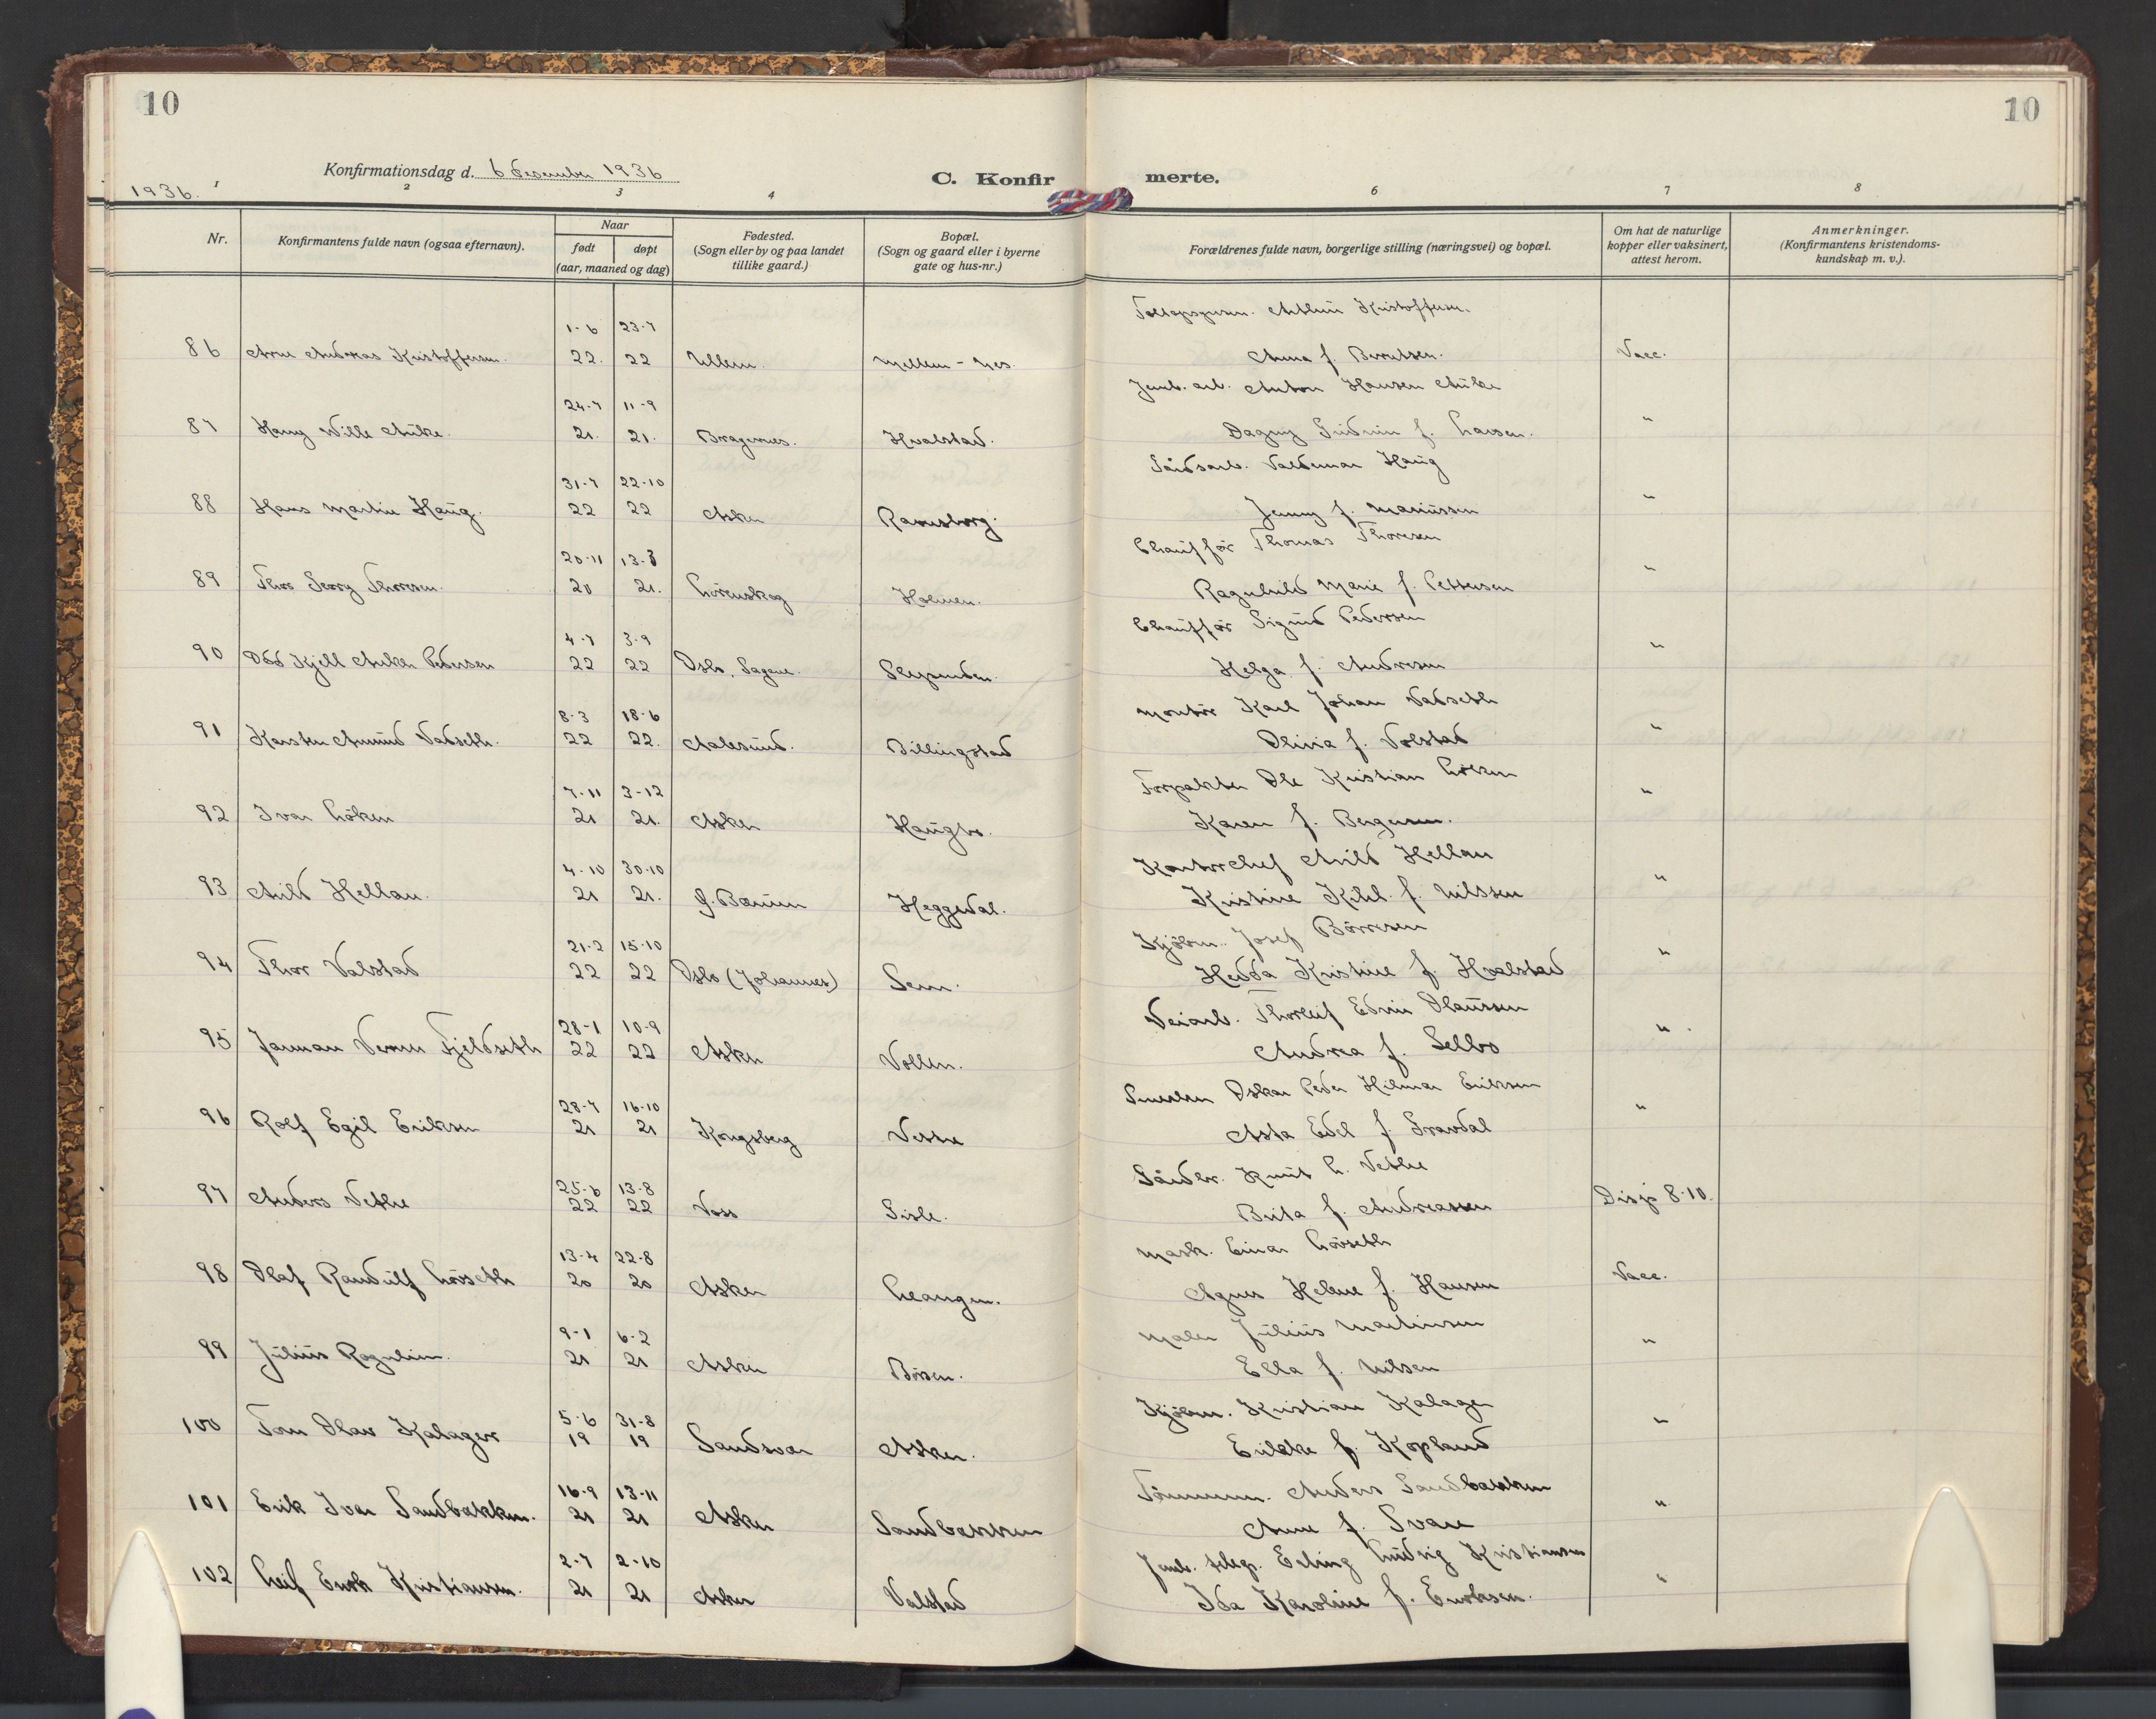 10
10
Konfirmationsdag d. 6 desember 1936
C. Konfirmerte.
1936.
1 2 3 4 6 7 8
Nr.
Konfirmantens fulde navn (ogsaa efternavn).
Naar
født
døpt
(aar, maaned og dag)
Fødested.
(Sogn eller by og paa landet
tillike gaard.)
Bopæl.
(Sogn og gaard eller i byerne
gate og hus-nr.)
Forældrenes fulde navn, borgerlige stilling (næringsvei) og bopæl.
Om hat de naturlige
kopper eller vaksinert,
attest herom.
Anmerkninger.
(Konfirmantens kristendoms-
kundskap m. v.).
1-6 23-7 Kristoffersen.
86 Arne Andreas Kristoffersen. 22. 22 Ullern. Mellem-Nes. Anna f. Berntsen. Vacc.
24-7 11-9 Jernb. arb. Anton Hansen
87 Harry Wille 21. 21. Bragernes. Hvalstad. Dagny Gudrun f. Larsen. "
31-7 22-10 Gårdsarb. Valdemar Haug
88 Hans Martin Haug. 22 22 Asker Ravnsborg. Jenny f. Mariussen "
20-11 13-3 Chauffør Thomas Thoresen
89 Thor Georg Thoresen. 20 21. Lørenskog Holmen. Ragnhild Marie f. Pettersen "
4-7 3-9 Chauffør Sigurd Pedersen
90 Odd Kjell Anker Pedersen 22 22 Oslo, Sagene. Slependen. Helga f. Andresen "
8-3 18-6 Montør Karl Johan Vadseth
91 Karsten Amund Vadseth. 22 22. Aalesund. Billingstad Olivia f. Volstad "
7-11 3-12 Forpakter Ole Kristian Løken
92 Ivar Løken 21 21. Asker Haugbo. Karen f. Bergersen. "
4-10 30-10 Kontorchef Arild Hellan
93 Arild Hellan. 21 21. Ø. Bærum Heggedal. Kristine f. Nilssen "
21-2 15-10 Kjøbm. Josef Børresen
94 Thor Valstad 22 22 Oslo (Johannes) Sem. Hedda Kristine f. Hvalstad "
28-1 10-9 Veiarb. Thorleif Edvin Olaussen
95 Jarman Verner Fjeldseth 22 22 Asker Vollen. Andrea f. Selbo "
28-7 16-10 Oskar Peder Hilmar Eriksen
96 Rolf Egil Eriksen 21 21 Kongsberg Vettre Asta Edel f. Gravdal "
25-6 13-8 Gårdbr. Knut L. Vethe
97 Anders Vethe 22 22 Voss Gisle. Brita f. Andreassen Disp 8-10.
13-4 22-8 Mask. Einar Løvseth
98 Olaf Randulf Løvseth 20 20 Asker Leangen. Agnes Helene f. Hansen Vacc.
9-1 6-2 Maler Julius Martinsen
99 Julius Ragnhim. 21 21 Asker Børsen. Ella f. Nilsen "
5-6 31-8 Kjøbm. Kristian Kalager
100 Tom Olav Kalager 19 19 Sandsvær Asker. f. Kopland "
16-9 13-11 Tømmerm. Anders Sandbakken
101 Erik Ivar Sandbakken. 21 21 Asker Sandbakken Anne f. Svare "
2-7 2-10 Jernb. telegr. Erling Ludvig Kristiansen
102 Leif Enok Kristiansen. 21 21 Asker Valstad Ida Karoline f. Enoksen. "